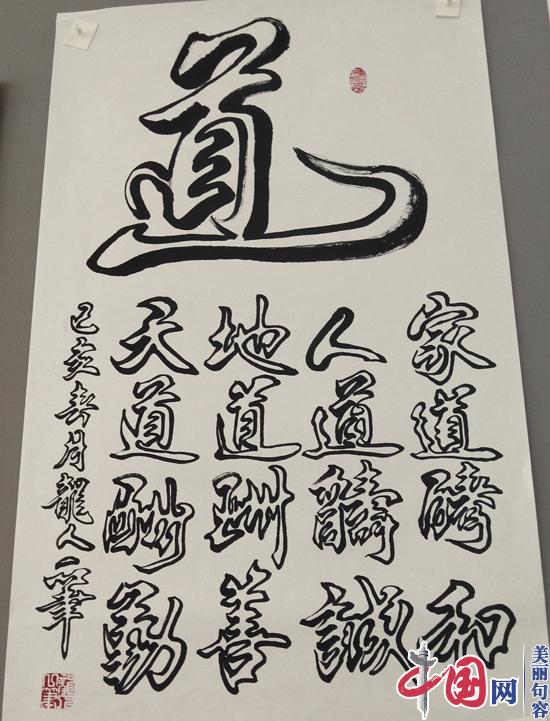 道
家道醻和
人道醻誠
地道酬善
天道酬勤
己亥春月龍人
中国网
美丽句容